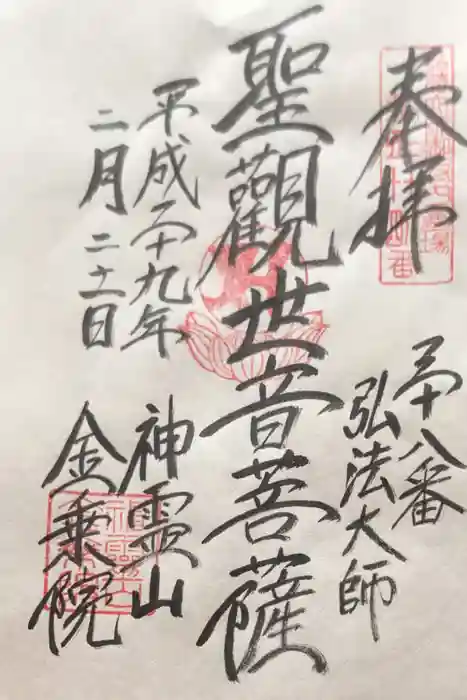 奉拝
三十八番
弘法大師
聖觀世音菩薩
平成二十九年
二月二十一日
神霊山
金乗院